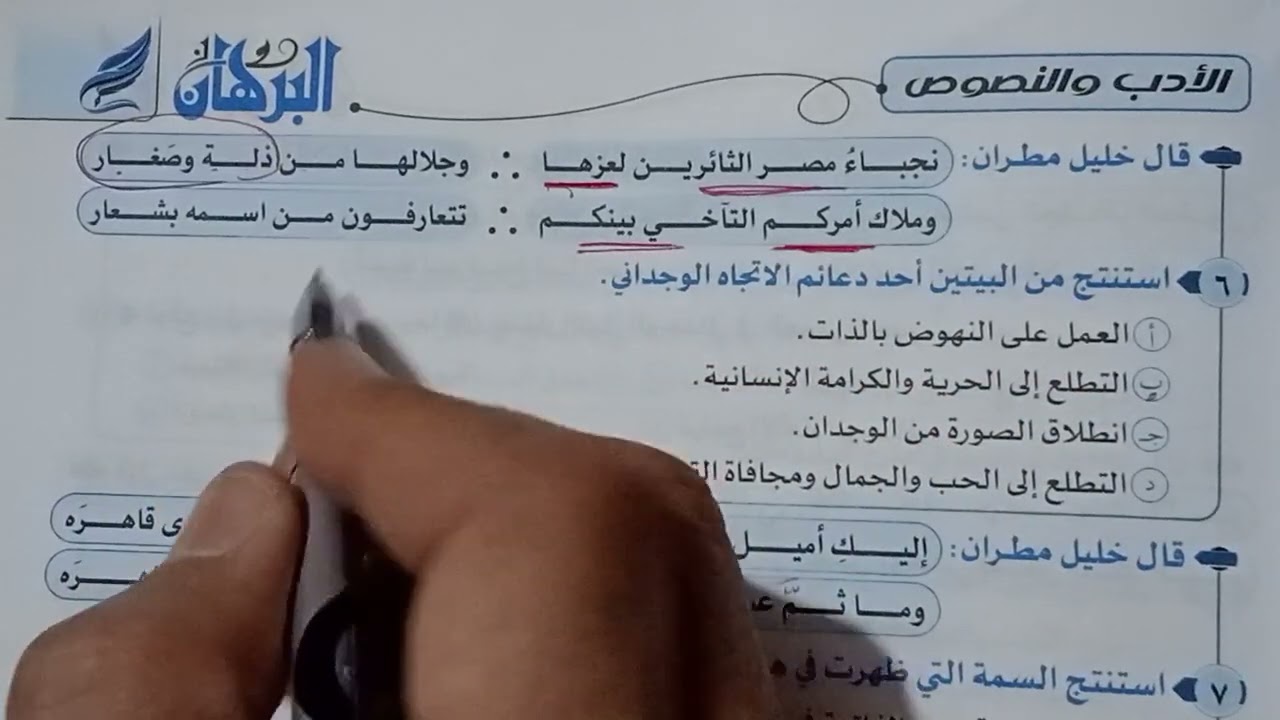 الأدب والنصوص
البرهان
قال خليل مطران: نجباءُ مصر الثائرين لعزها ∴ وجلالها من ذلةِ وصَغار
وملاك أمركم التآخي بينكم ∴ تتعارفون من اسمه بشعار
٦ استنتج من البيتين أحد دعائم الاتجاه الوجداني.
أ العمل على النهوض بالذات.
ب التطلع إلى الحرية والكرامة الإنسانية.
جـ انطلاق الصورة من الوجدان.
د التطلع إلى الحب والجمال ومجافاة
قال خليل مطران: إليكِ أميل قاهرَه
وما ثمَّ
٧ استنتج السمة التي ظهرت في